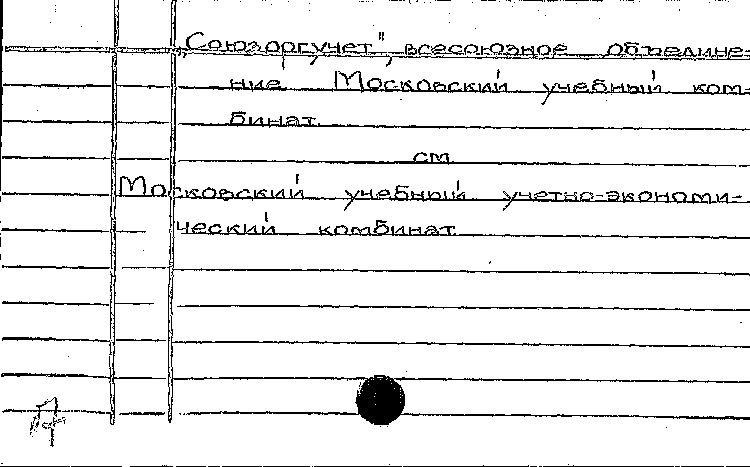 „Союзоргучет", всесоюзное объедине-
ние. Московский учебный ком-
бинат.
см.
Московский учебный учетно-экономи-
ческий комбинат